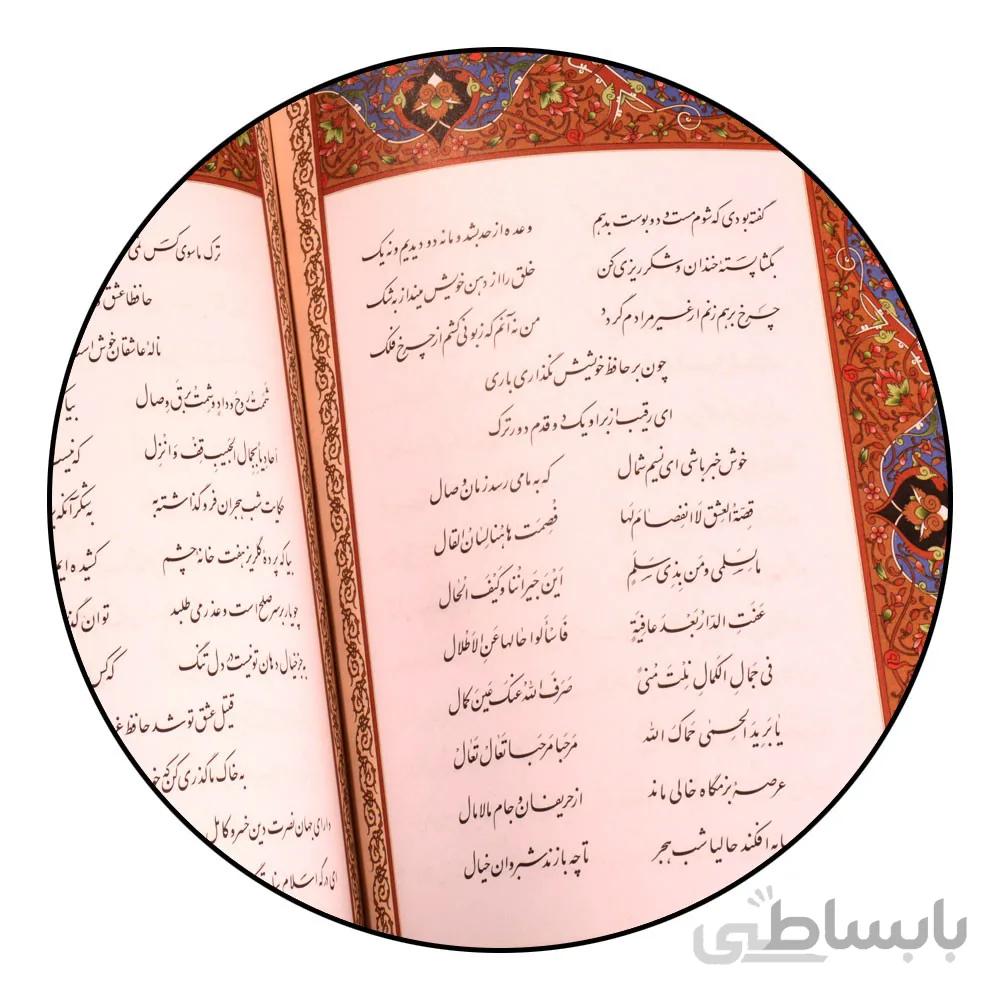 گفته بودی که شوم مست و دو بوست بدهم وعده از حد بشد و ما نه دو دیدیم و نه یک
بگشا پسته خندان و شکر ریزی کن خلق را از دهن خویش مینداز به شک
چرخ برهم زنم ار غیر مرادم گردد من نه آنم که زبونی کشم از چرخ فلک
چون بر حافظ خویشش نگذاری باری
ای رقیب از بر او یک دو قدم دورترک
خوش خبر باشی ای نسیم شمال که به ما می رسد زمان وصال
قصة العشق لا انفصام لها فصمت ها هنا لسان القال
ما لسلمی و من بذی سلم این جیراننا و کیف الحال
عفت الدار بعد عافیة فاسألوا حالها عن الاطلال
فی جمال الکمال نلت منی صرف الله عنک عین کمال
یا برید الحمی حماک الله مرحبا مرحبا تعال تعال
عرصه بزمگاه خالی ماند از حریفان و جام مالامال
سایه افکند حالیا شب هجر تا چه بازند شبروان خیال
ترک ما سوی کس
حافظا عشق
ناله عاشقان خوش است
شممت روح وداد و شمت برق وصال بیا
احادیا بجمال الحبیب قف و انزل که نیست
حکایت شب هجران فروگذاشته به به شکر آنکه
بیا که پرده گلریز هفت خانه چشم کشیده ایم
چو یار بر سر صلح است و عذر می طلبد توان گذ
بجز خیال دهان تو نیست در دل تنگ که کس
قتیل عشق تو شد حافظ غر
به خاک ما گذری کن که خو
دارای جهان نصرت دین خسرو کامل
ای درگه اسلام پناه
بابساطی